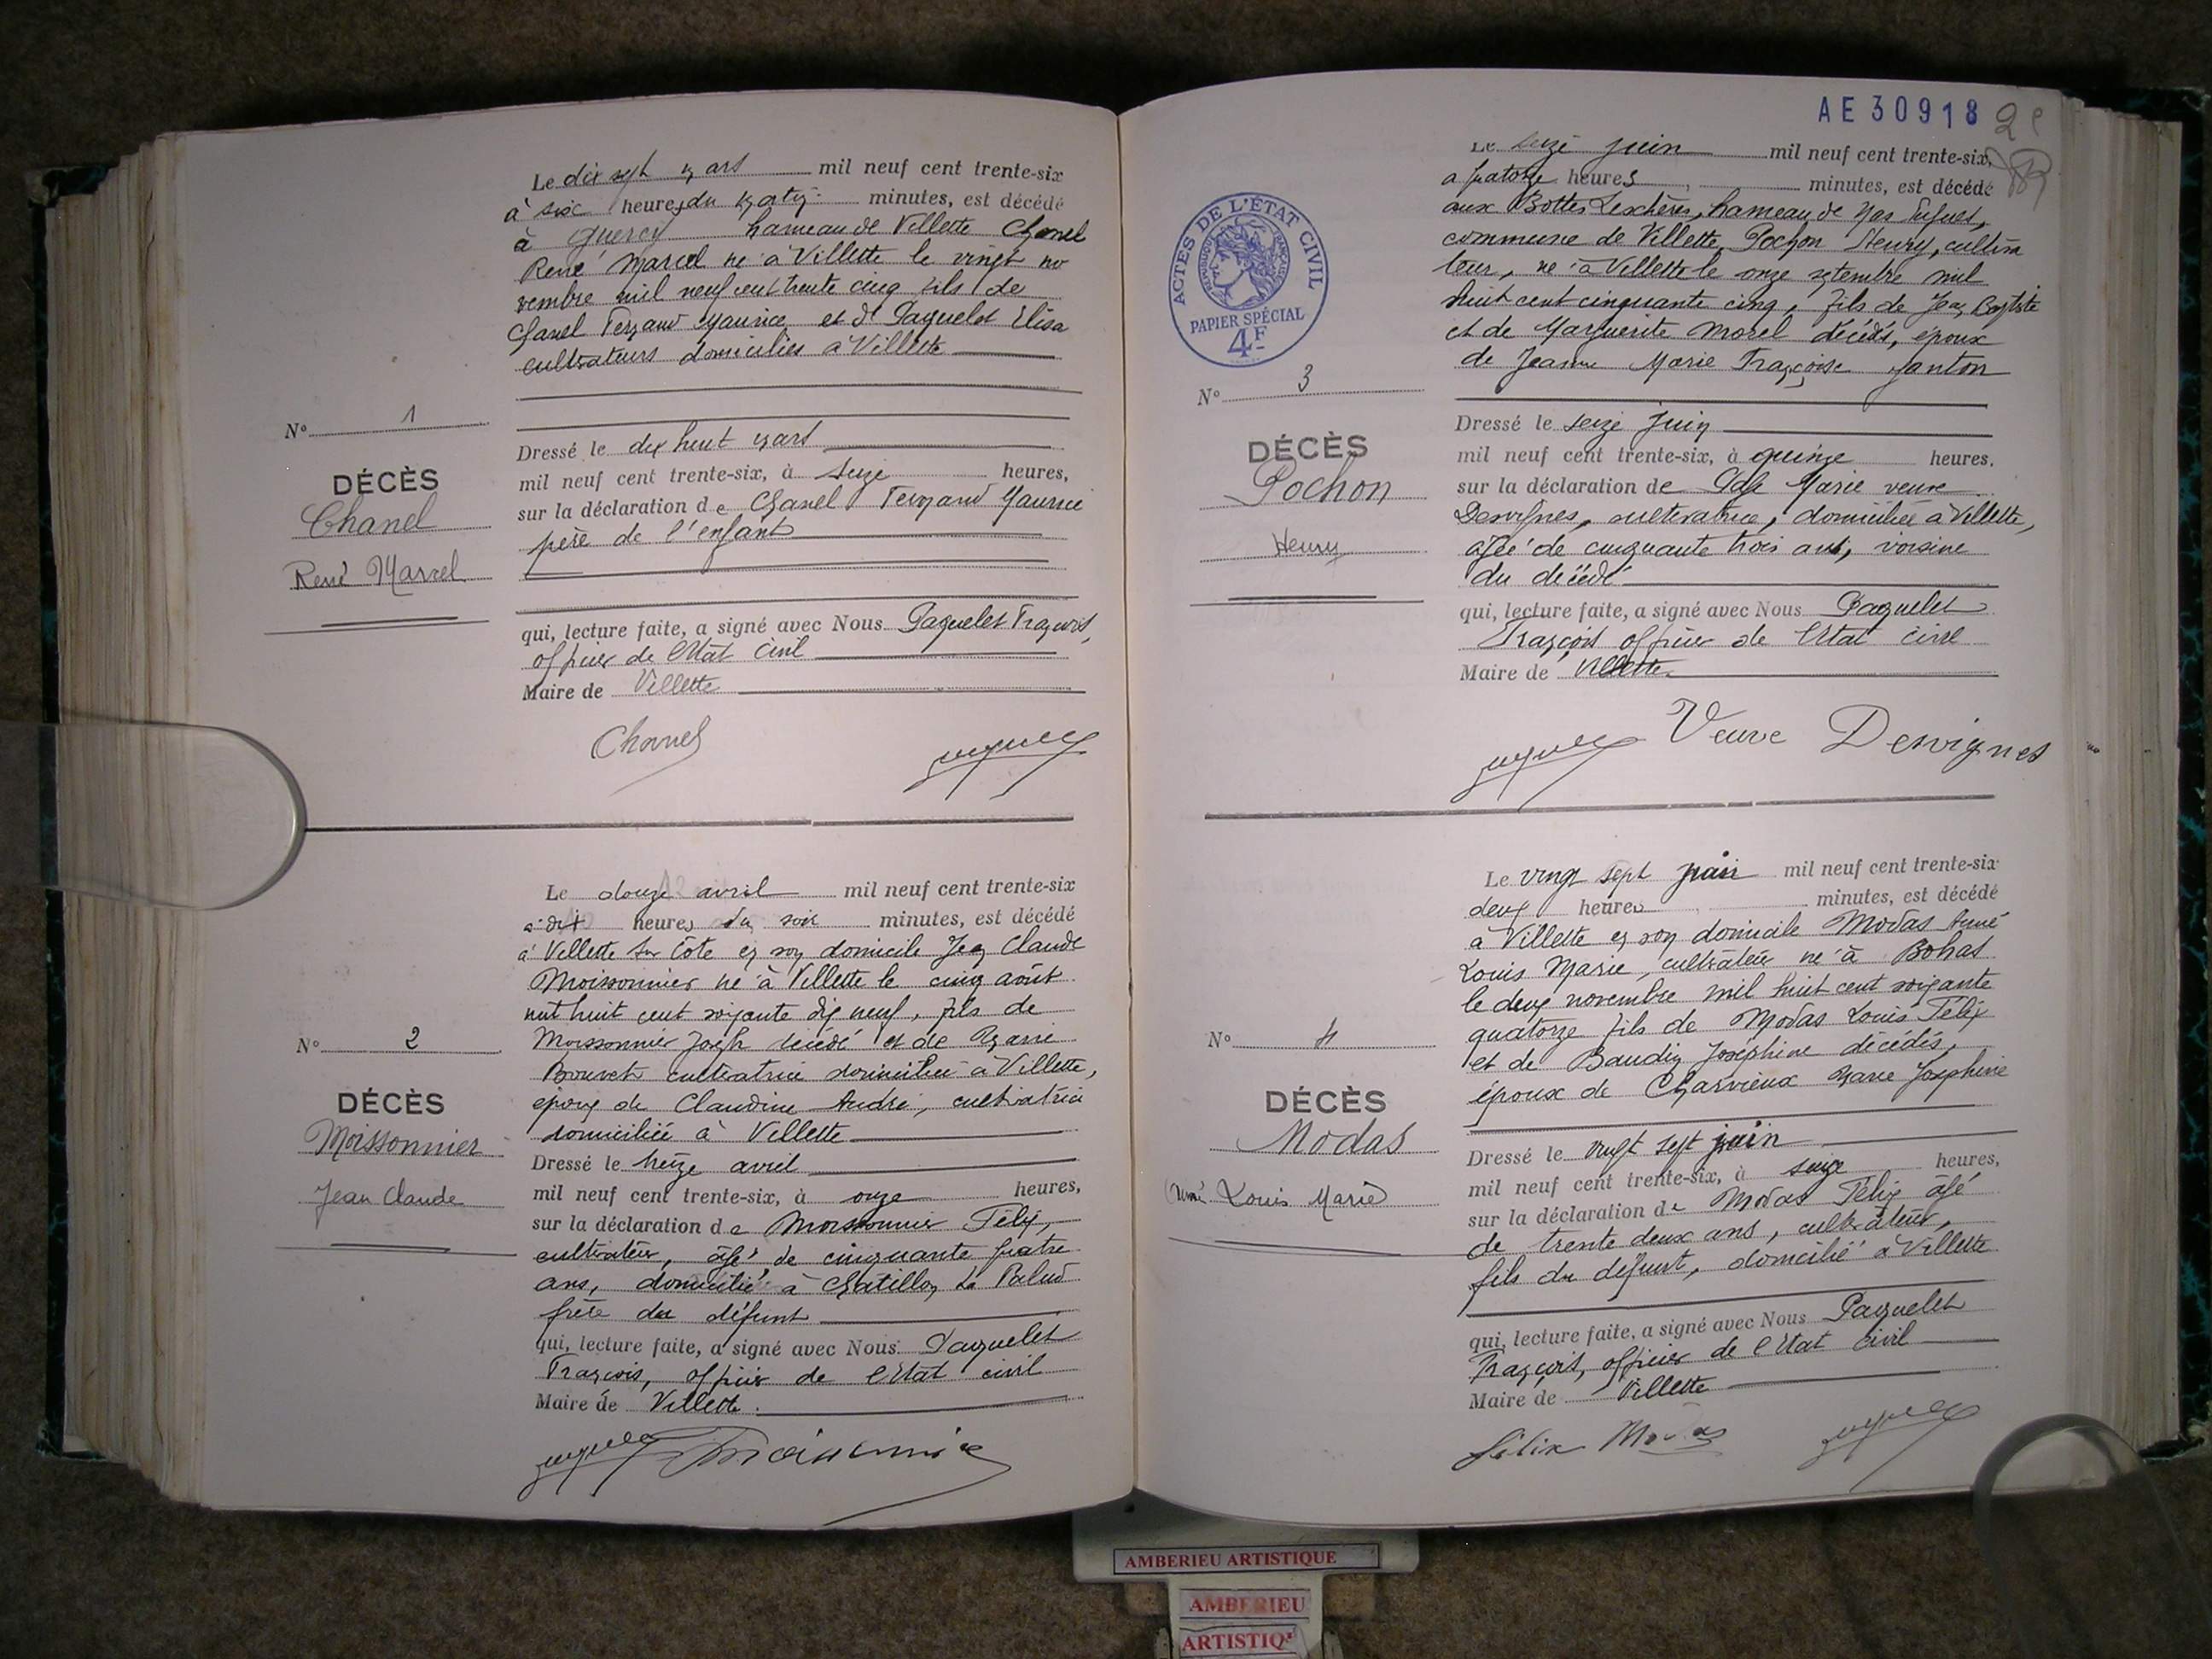 Le dix sept mars mil neuf cent trente-six
à six heures du matin minutes, est décédé
à Quercy hameau de Villette Chanel
René Marcel né à Villette le vingt no
vembre mil neuf cent trente cinq fils de
Chanel Fernand Maurice et de Paquelet Elisa
cultivateurs domiciliés à Villette
N° 1
DÉCÈS
Chanel
René Marcel
Dressé le dix huit mars
mil neuf cent trente-six, à seize heures,
sur la déclaration de Chanel Fernand Maurice
père de l'enfant
qui, lecture faite, a signé avec Nous Paquelet François,
officier de l'Etat civil
Maire de Villette
Chanel
Le douze avril mil neuf cent trente-six
à dix heures du soir minutes, est décédé
à Villette sur Côte en son domicile Jean Claude
Moissonnier né à Villette le cinq août
mil huit cent soixante dix neuf, fils de
Moissonnier Joseph décédé et de
Bouvet cultivatrice domiciliée à Villette,
époux de Claudine André, cultivatrice
domiciliée à Villette
N° 2
DÉCÈS
Moissonnier
Jean Claude
Dressé le treize avril
mil neuf cent trente-six, à onze heures,
sur la déclaration de Moissonnier Félix,
cultivateur, âgé de cinquante quatre
ans, domicilié à Chatillon La Palud
frère du défunt
qui, lecture faite, a signé avec Nous Paquelet
François, officier de l'Etat civil
Maire de Villette.
Moissonnier
AE30918
Le seize juin mil neuf cent trente-six,
a quatorze heures, minutes, est décédé
aux Bottes Leschères, hameau de Mas
commune de Villette, Pochon Henry, cultiva
teur, né à Villette le onze septembre mil
huit cent cinquante cinq, fils de Jean Baptiste
et de Marguerite Morel décédés, époux
de Jeanne Marie Françoise Janton
ACTES DE L'ÉTAT CIVIL
RÉPUBLIQUE FRANÇAISE
PAPIER SPÉCIAL
4F
N° 3
DÉCÈS
Pochon
Henry
Dressé le seize juin
mil neuf cent trente-six, à quinze heures.
sur la déclaration de Marie veuve
Desvignes, cultivatrice, domiciliée à Villette,
âgée de cinquante trois ans, voisine
du décédé
qui, lecture faite, a signé avec Nous Paquelet
François officier de l'Etat civil
Maire de Villette
Veuve Desvignes
Le vingt sept juin mil neuf cent trente-six
deux heures, minutes, est décédé
à Villette en son domicile Modas Aimé
Louis Marie, cultivateur né à Bohas
le deux novembre mil huit cent soixante
quatorze fils de Modas Louis Félix
et de Baudin Joséphine décédés,
époux de Charvieux Marie Joséphine
N° 4
DÉCÈS
Modas
Aimé Louis Marie
Dressé le vingt sept juin
mil neuf cent trente-six, à seize heures,
sur la déclaration de Modas Félix âgé
de trente deux ans, cultivateur,
fils du défunt, domicilié à Villette
qui, lecture faite, a signé avec Nous Paquelet
François, officier de l'Etat civil
Maire de Villette
Félix Modas
AMBERIEU ARTISTIQUE
AMBERIEU
ARTISTIQ